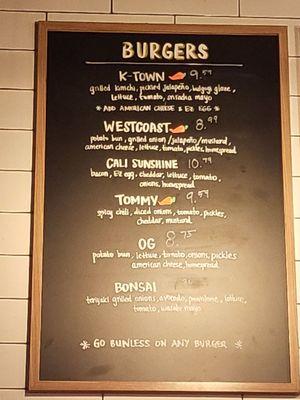 BURGERS
K-TOWN 9.59
grilled kimchi, pickled jalapeño, bulgogi glaze,
lettuce, tomato, sriracha mayo
* ADD AMERICAN CHEESE & EZ EGG *
WESTCOAST 8.99
potato bun, grilled onion/jalapeño/mustard,
american cheese, lettuce, tomato, pickles, housespread
CALI SUNSHINE 10.79
bacon, EZ egg, cheddar, lettuce, tomato,
onions, housespread
TOMMY 9.59
spicy chili, diced onions, tomato, pickles,
cheddar, mustard
OG 8.75
potato bun, lettuce, tomato, onions, pickles
american cheese, housespread
BONSAI
teriyaki grilled onions, avocado, provolone, lettuce,
tomato, wasabi mayo
* GO BUNLESS ON ANY BURGER *